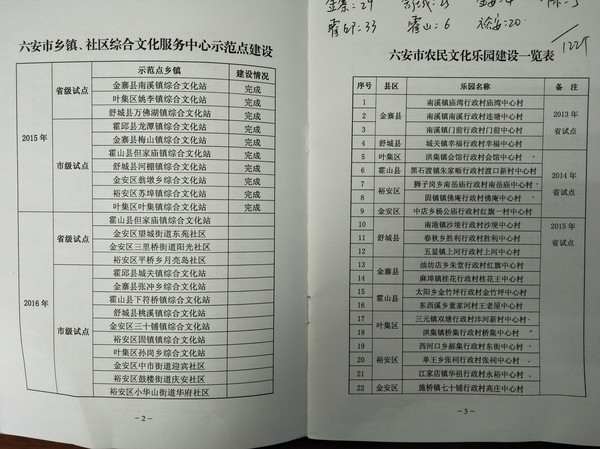 六安市乡镇、社区综合文化服务中心示范点建设
示范点乡镇 建设情况
2015年
省级试点
金寨县南溪镇综合文化站 完成
叶集区姚李镇综合文化站 完成
舒城县万佛湖镇综合文化站 完成
市级试点
霍邱县龙潭镇综合文化站 完成
金寨县梅山镇综合文化站 完成
霍山县但家庙镇综合文化站 完成
舒城县河棚镇综合文化站 完成
金安区翁墩乡综合文化站 完成
裕安区苏埠镇综合文化站 完成
叶集区叶集镇综合文化站 完成
2016年
省级试点
霍山县但家庙镇综合文化站
金安区望城街道东苑社区
金安区三里桥街道阳光社区
裕安区平桥乡月亮岛社区
市级试点
霍邱县城关镇综合文化站
金寨县张冲乡综合文化站
霍山县下符桥镇综合文化站
舒城县桃溪镇综合文化站
金安区三十铺镇综合文化站
裕安区固镇镇综合文化站
叶集区孙岗乡综合文化站
金安区中市街道迎宾社区
裕安区鼓楼街道庆安社区
裕安区小华山街道华府社区
－2－
霍邱:33 霍山:6 裕安:20
122个
六安市农民文化乐园建设一览表
序号 县区 乐园名称 备注
1 金寨县 南溪镇庙湾行政村庙湾中心村 2013年省试点
2 南溪镇南溪行政村连塘中心村
3 南溪镇门前行政村门前中心村
4 舒城县 城关镇幸福行政村幸福中心村
5 叶集区 洪集镇会馆行政村会馆中心村 2014年省试点
6 霍山县 黑石渡镇朱家畈行政村渡口新村中心村
7 裕安区 狮子岗乡南岳庙行政村南岳庙中心村
8 固镇镇佛庵行政村佛庵中心村
9 金安区 中店乡杨公庙行政村红旗一村中心村
10 舒城县 南港镇沙埂行政村沙埂中心村 2015年省试点
11 春秋乡胜利行政村胜利中心村
12 五显镇上河行政村上河中心村
13 金寨县 油坊店乡朱堂行政村红旗中心村
14 麻埠镇桂花行政村桂花王中心村
15 霍山县 太阳乡金竹坪行政村金竹坪中心村
16 东西溪乡董家河村王老屋中心村
17 叶集区 三元镇双塘行政村沣河新村中心村
18 洪集镇桥集行政村桥集中心村
19 裕安区 西河口乡郝集行政村东街中心村
20 单王乡张祠行政村张祠中心村
21 江家店镇华祖行政村永裕中心村
22 金安区 施桥镇七十铺行政村高庄中心村
－3－